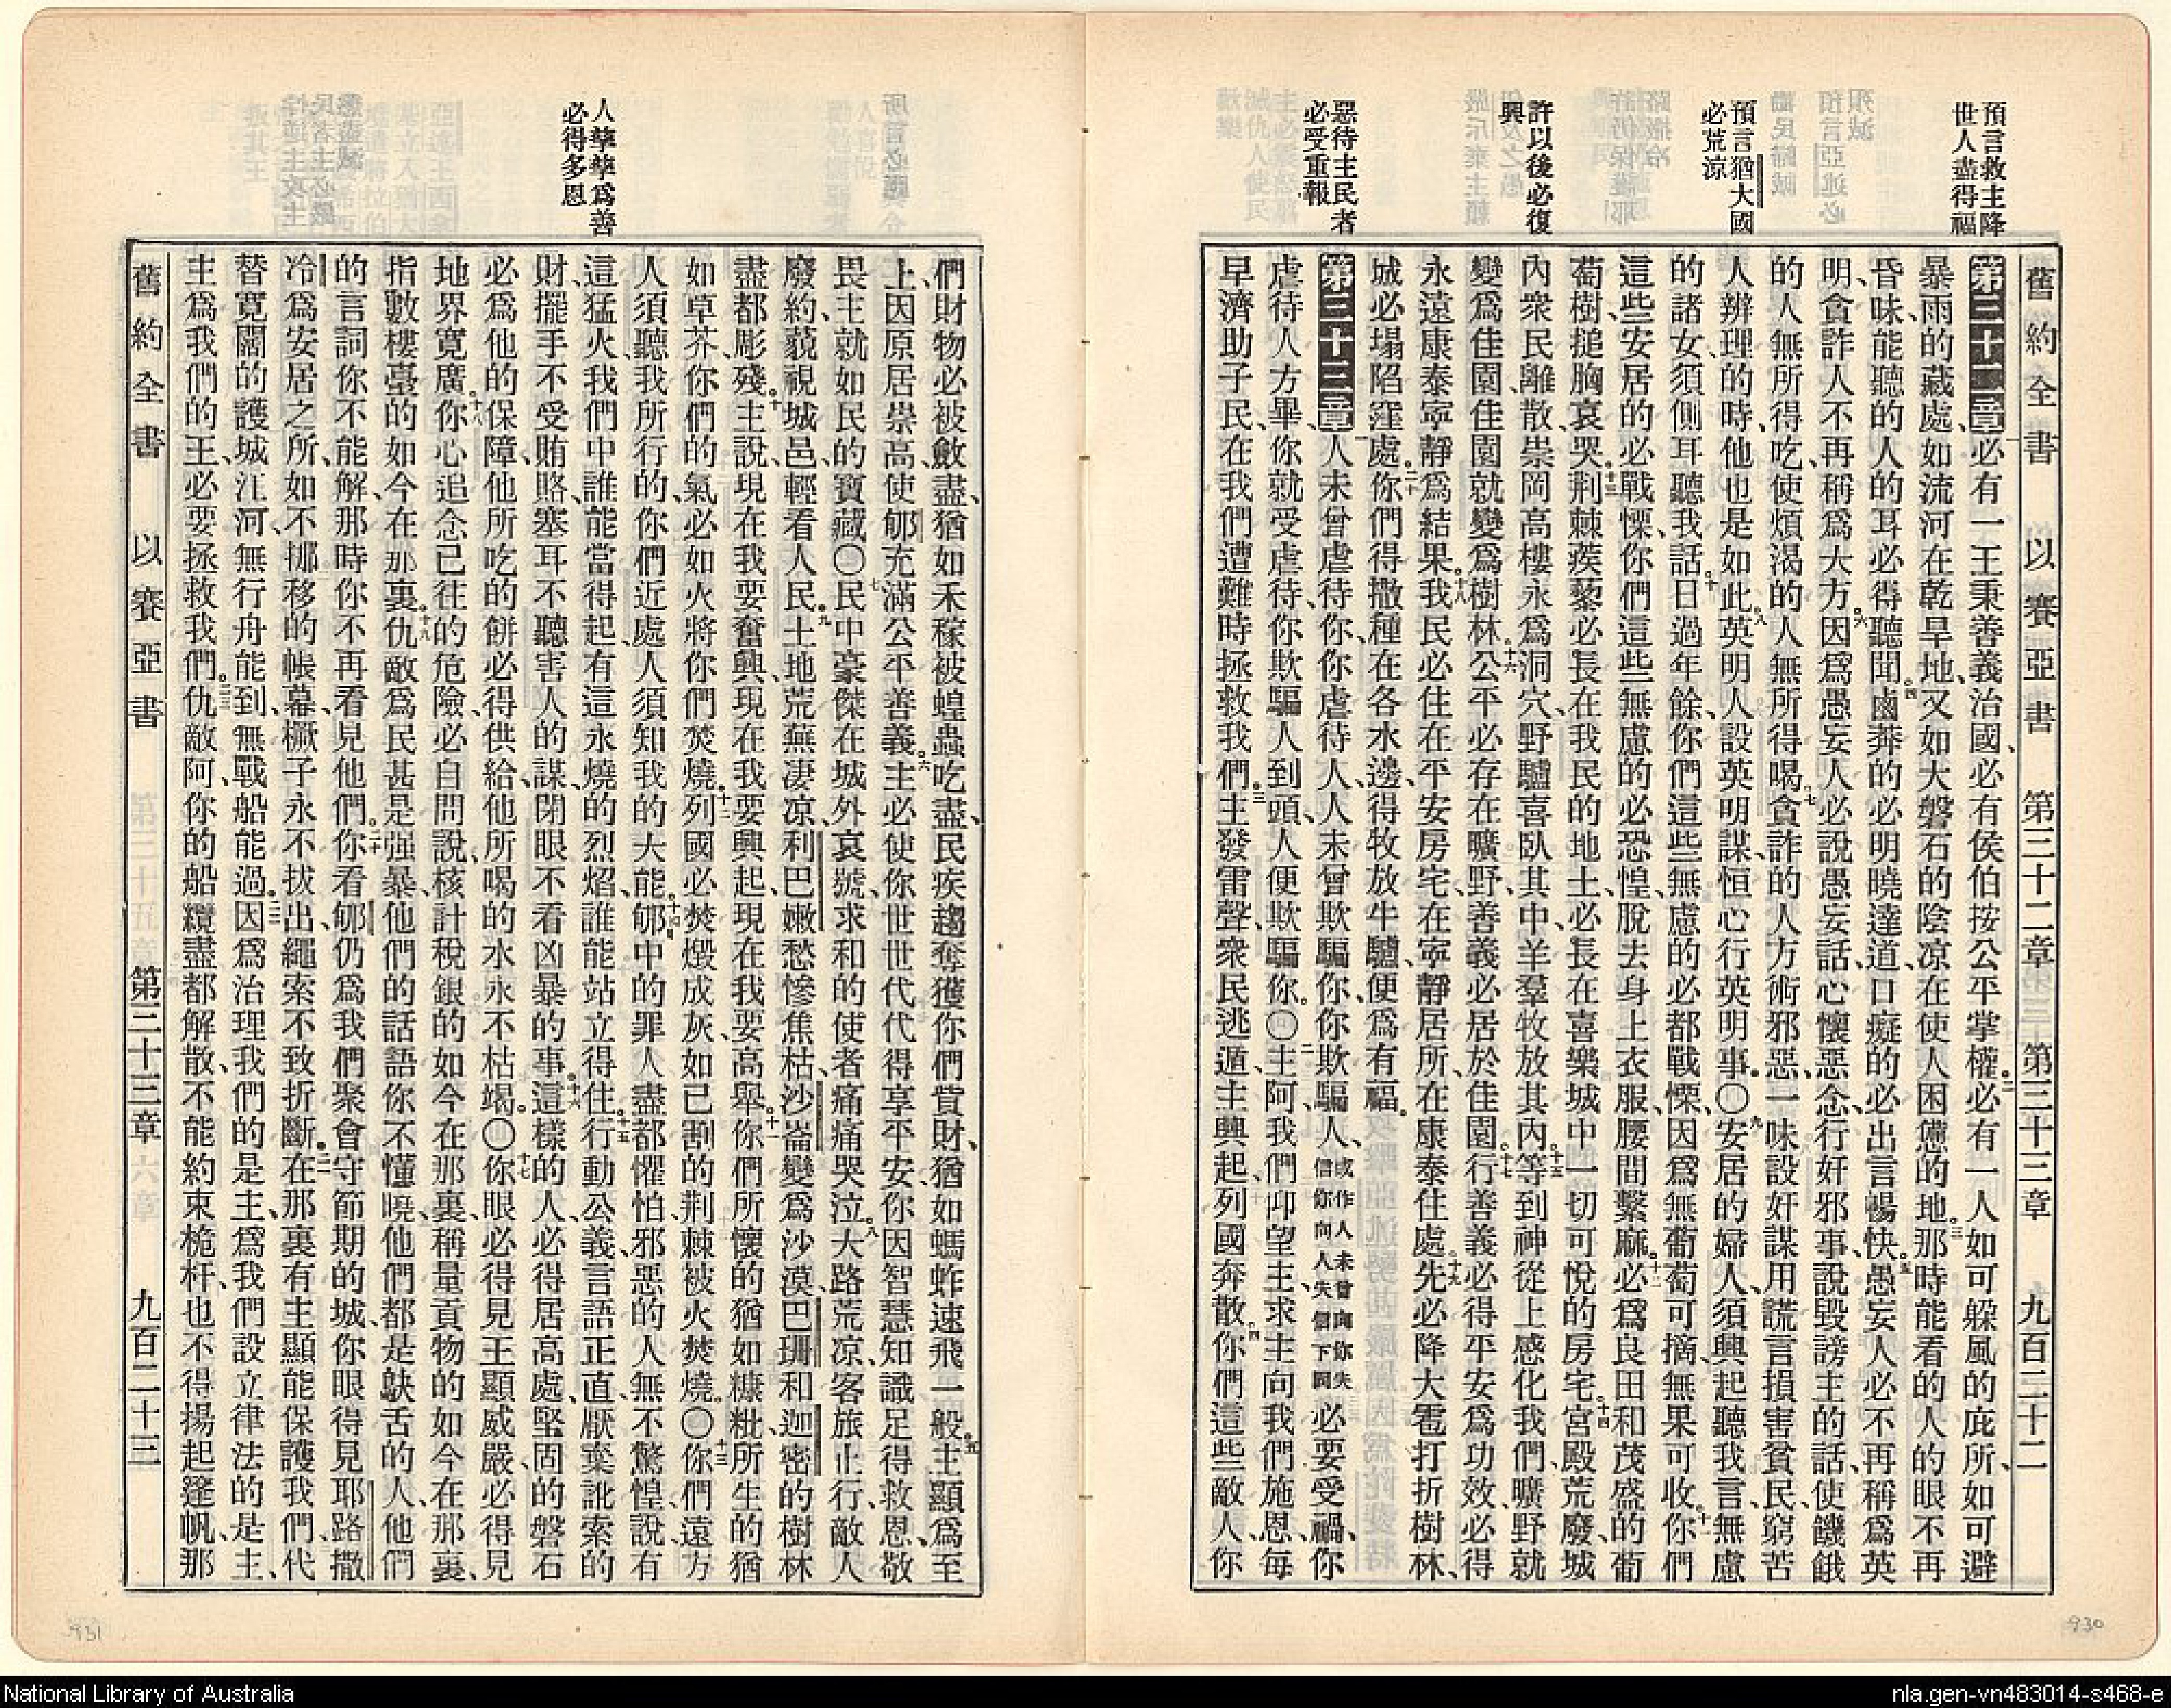 預言救主降
世人盡得福
預言猶大國
必荒涼
許以後必復
興
惡待主民者
必受重報
舊約全書　以賽亞書　第三十二章　第三十三章　九百二十二
第三十二章 一必有一王秉善義治國、必有侯伯按公平掌權。二必有一人如可躱風的庇所、如可避
暴雨的藏處、如流河在乾旱地、又如大磐石的陰凉在使人困憊的地。三那時能看的人的眼不再
昏昧、能聽的人的耳必得聽聞。四鹵莽的必明曉達道、口癡的必出言暢快。五愚妄人必不再稱爲英
明、貪詐人不再稱爲大方。六因爲愚妄人必說愚妄話、心懷惡念、行奸邪事、說毀謗主的話、使饑餓
的人無所得吃、使煩渴的人無所得喝。七貪詐的人方術邪惡、一味設奸謀用謊言損害貧民、窮苦
人辨理的時、他也是如此。八英明人設英明謀、恒心行英明事。〇九安居的婦人、須興起聽我言、無慮
的諸女、須側耳聽我話。十日過年餘、你們這些無慮的必都戰慄、因爲無葡萄可摘、無果可收。十一你們
這些安居的必戰慄、你們這些無慮的必恐惶、脫去身上衣服、腰間繫麻。十二必爲良田和茂盛的葡
萄樹、搥胸哀哭。十三荆棘蒺藜必長在我民的地土、必長在喜樂城中一切可悅的房宅。十四宮殿荒廢、城
內衆民離散、崇岡高樓永爲洞穴、野驢喜臥其中、羊羣牧放其內。十五等到神從上感化我們、曠野就
變爲佳園、佳園就變爲樹林。十六公平必存在曠野、善義必居於佳園。十七行善義必得平安爲功效、必得
永遠康泰寧靜爲結果。十八我民必住在平安房宅、在寧靜居所、在康泰住處。十九先必降大雹打折樹林、
城必塌陷窪處。二十你們得撒種在各水邊、得牧放牛驢、便爲有福。
第三十三章 一人未曾虐待你、你虐待人、人未曾欺騙你、你欺騙人、或作人未曾向你失信你向人失信下同 必要受禍、你
虐待人方畢、你就受虐待、你欺騙人到頭、人便欺騙你。〇二主阿、我們仰望主、求主向我們施恩、每
早濟助子民、在我們遭難時拯救我們。三主發雷聲、衆民逃遁、主興起、列國奔散。四你們這些敵人、你
930
人孳孳爲善
必得多恩
們財物必被斂盡、猶如禾稼被蝗蟲吃盡、民疾趨奪獲你們貲財、猶如螞蚱速飛一般。五主顯爲至
上、因原居崇高、使郇充滿公平善義。六主必使你世世代代得享平安、你因智慧知識足得救恩、敬
畏主就如民的寶藏〇七民中豪傑在城外哀號、求和的使者痛痛哭泣。八大路荒凉、客旅止行、敵人
廢約、藐視城邑、輕看人民。九土地荒蕪凄凉、利巴嫩愁慘焦枯、沙崙變爲沙漠、巴珊和迦密的樹林
盡都彫殘。十主說、現在我要奮興、現在我要興起、現在我要高舉。十一你們所懷的猶如糠粃、所生的猶
如草芥、你們的氣必如火將你們焚燒。十二列國必焚燬成灰、如已割的荆棘被火焚燒。〇十三你們遠方
人須聽我所行的、你們近處人須知我的大能。十四郇中的罪人盡都懼怕、邪惡的人無不驚惶、說有
這猛火、我們中誰能當得起、有這永燒的烈焰、誰能站立得住。十五行動公義、言語正直、厭棄訛索的
財、擺手不受賄賂、塞耳不聽害人的謀、閉眼不看凶暴的事。十六這樣的人、必得居高處、堅固的磐石
必爲他的保障、他所吃的餅必得供給、他所喝的水永不枯竭。〇十七你眼必得見王顯威嚴、必得見
地界寬廣。十八你心追念已往的危險、必自問說、核計稅銀的如今在那裏、稱量貢物的如今在那裏、
指數樓臺的如今在那裏。十九仇敵爲民甚是强暴、他們的話語你不懂曉、他們都是鴃舌的人、他們
的言詞你不能解、那時你不再看見他們。二十你看郇仍爲我們聚會守節期的城、你眼得見耶路撒
冷爲安居之所、如不挪移的帳幕、橛子永不拔出、繩索不致折斷。二一在那裏有主顯能保護我們、代
替寬闊的護城江河、無行舟能到、無戰船能過。二二因爲治理我們的是主、爲我們設立律法的是主、
主爲我們的王、必要拯救我們。二三仇敵阿、你的船纜盡都解散、不能約束桅杆、也不得揚起篷帆、那
舊約全書　以賽亞書　第三十三章　九百二十三
931
National Library of Australia
nla.gen-vn483014-s468-e